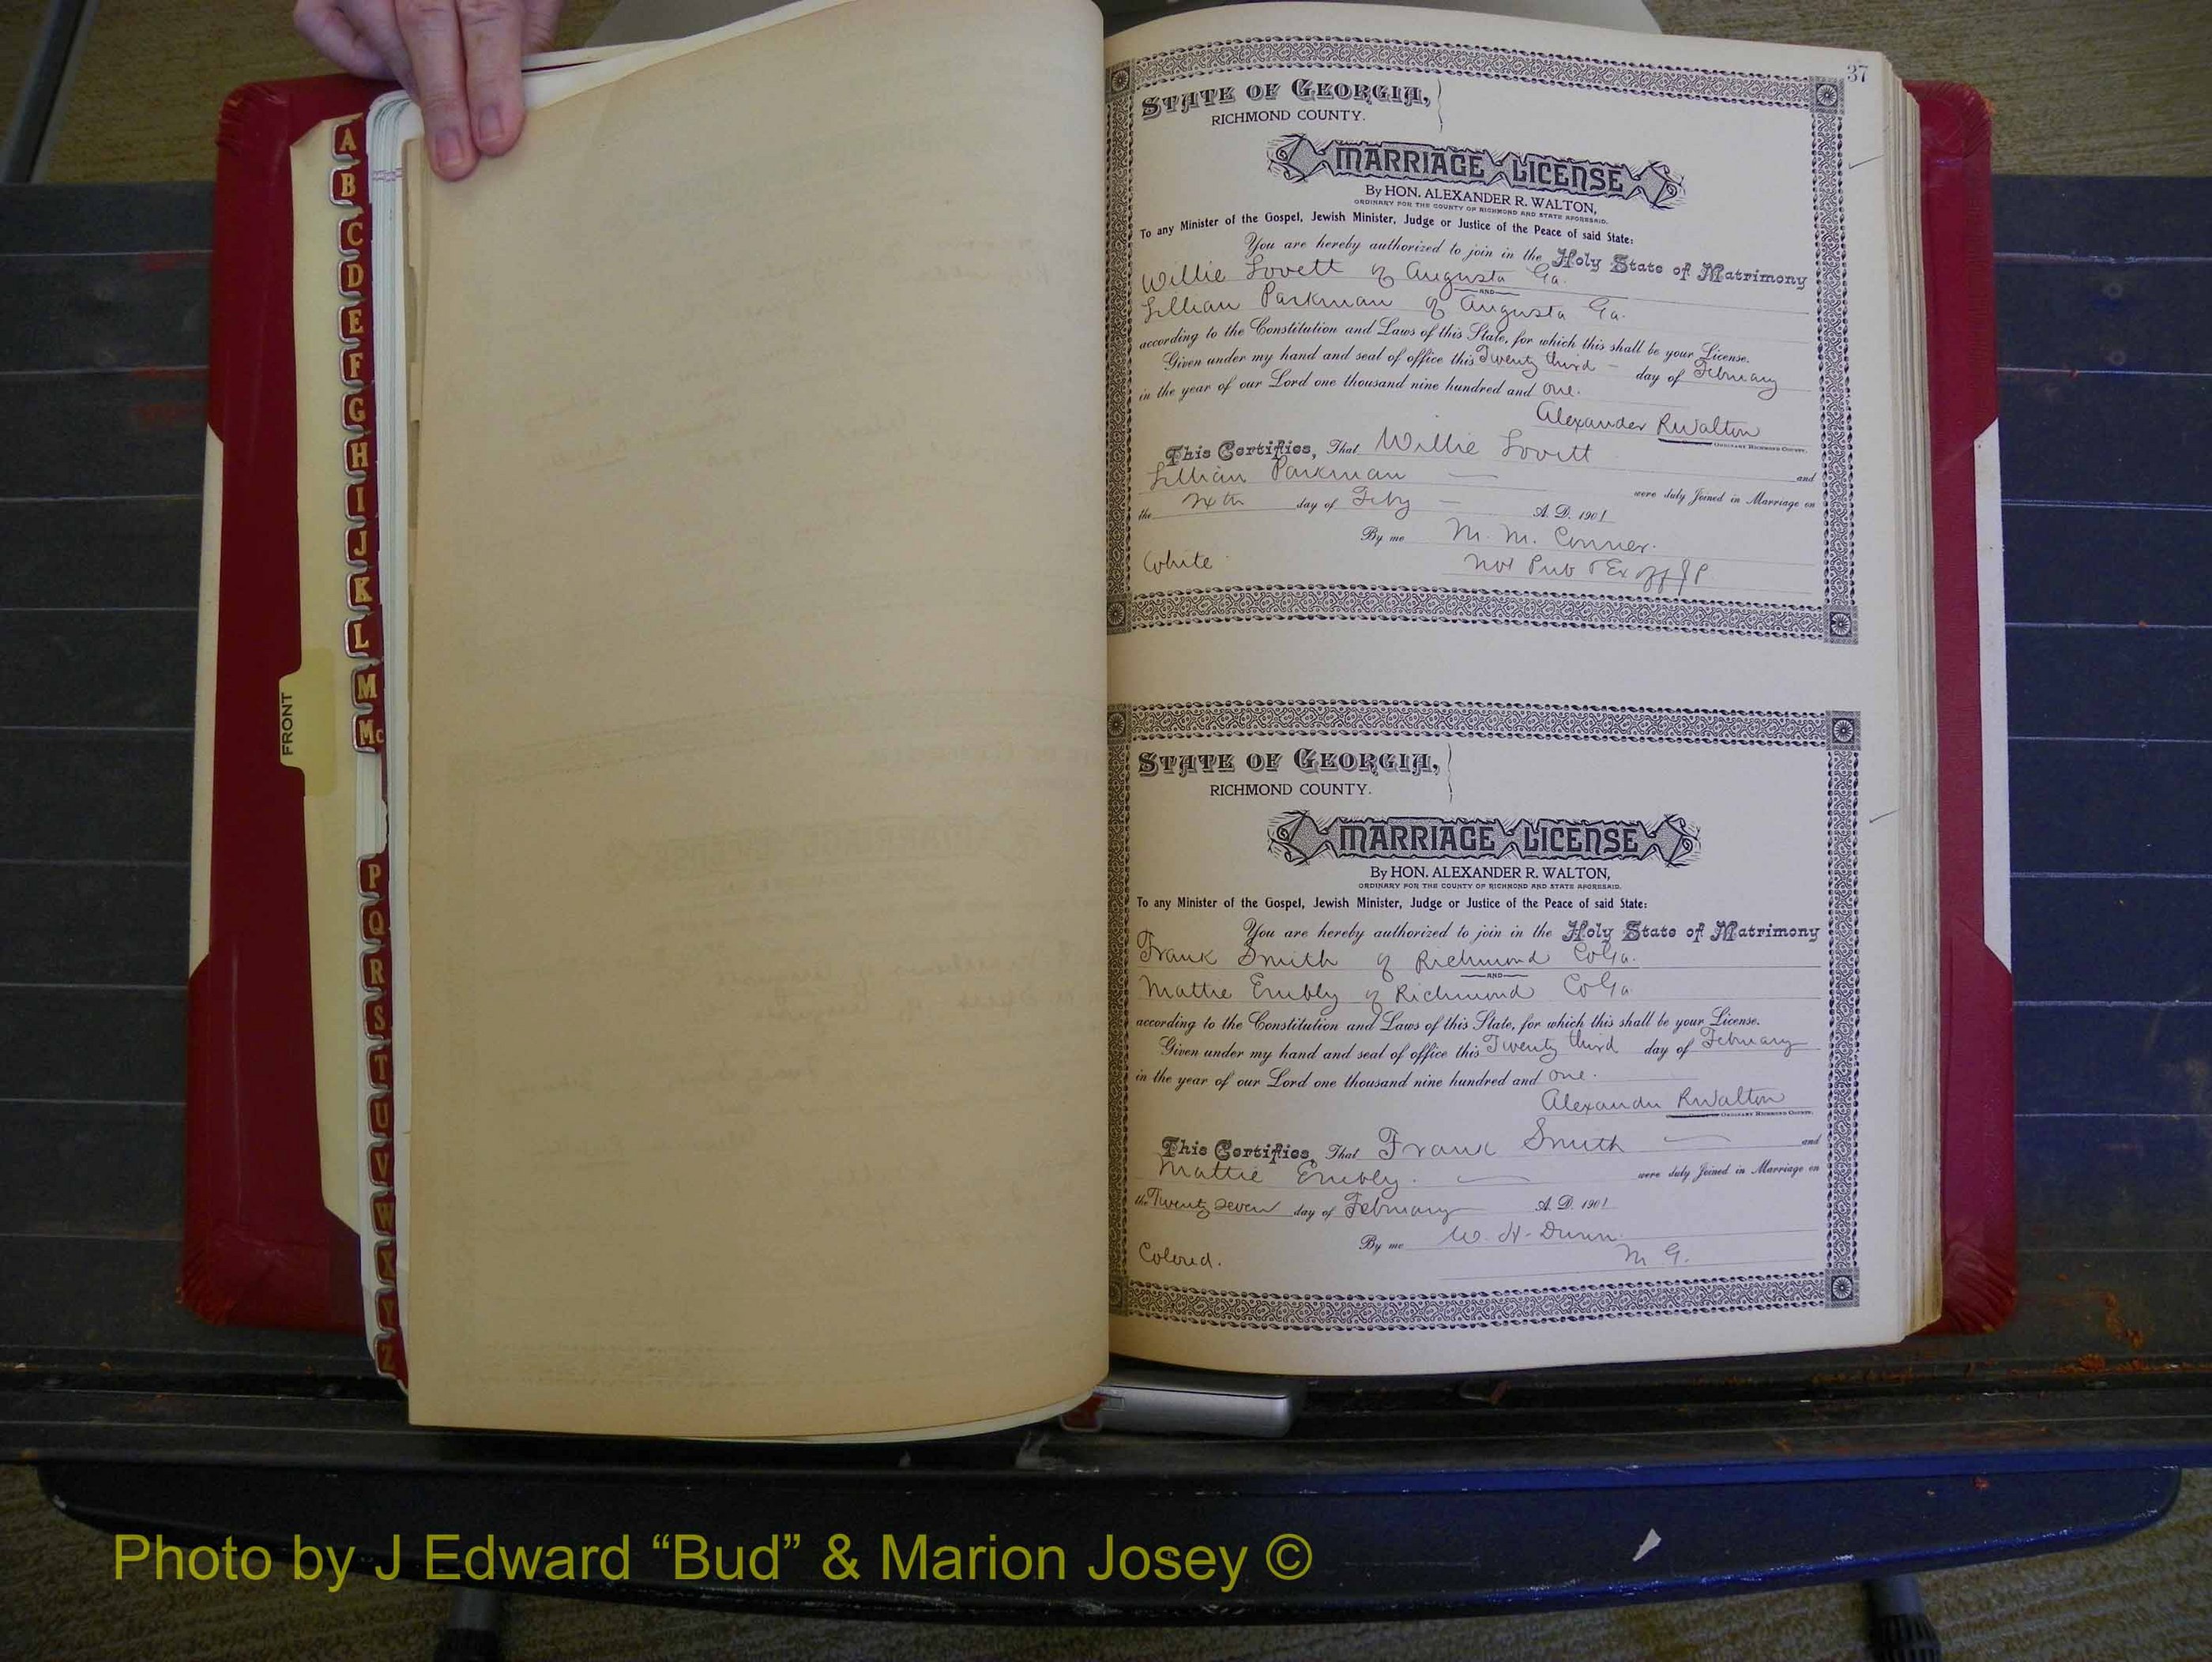 A
B
C
D
E
F
G
H
I
J
K
L
M
Mc
P
Q
R
S
T
U
V
W
X
Y
Z
FRONT
37
STATE OF GEORGIA,
RICHMOND COUNTY.
MARRIAGE LICENSE
By HON. ALEXANDER R. WALTON,
ORDINARY FOR THE COUNTY OF RICHMOND AND STATE AFORESAID.
To any Minister of the Gospel, Jewish Minister, Judge or Justice of the Peace of said State:
You are hereby authorized to join in the Holy State of Matrimony
Willie Lovett of Augusta Ga.
AND
Lillian Parkman of Augusta Ga.
according to the Constitution and Laws of this State, for which this shall be your License.
Given under my hand and seal of office this Twenty third day of February
in the year of our Lord one thousand nine hundred and one.
Alexander R Walton
ORDINARY RICHMOND COUNTY.
This Certifies, That Willie Lovett
Lillian Parkman and
were duly Joined in Marriage on
the day of Feby A. D. 1901
By me M. M. Conner.
White Not Pub & Ex off J P
STATE OF GEORGIA,
RICHMOND COUNTY.
MARRIAGE LICENSE
By HON. ALEXANDER R. WALTON,
ORDINARY FOR THE COUNTY OF RICHMOND AND STATE AFORESAID.
To any Minister of the Gospel, Jewish Minister, Judge or Justice of the Peace of said State:
You are hereby authorized to join in the Holy State of Matrimony
Frank Smith of Richmond Co Ga.
AND
Mattie Embly of Richmond Co Ga
according to the Constitution and Laws of this State, for which this shall be your License.
Given under my hand and seal of office this Twenty third day of February
in the year of our Lord one thousand nine hundred and one.
Alexander R Walton
ORDINARY RICHMOND COUNTY.
This Certifies, That Frank Smith and
Mattie Embly. were duly Joined in Marriage on
the Twenty seven day of February A. D. 1901
By me W. H. Dunn.
Colored. M. G.
Photo by J Edward “Bud” & Marion Josey ©